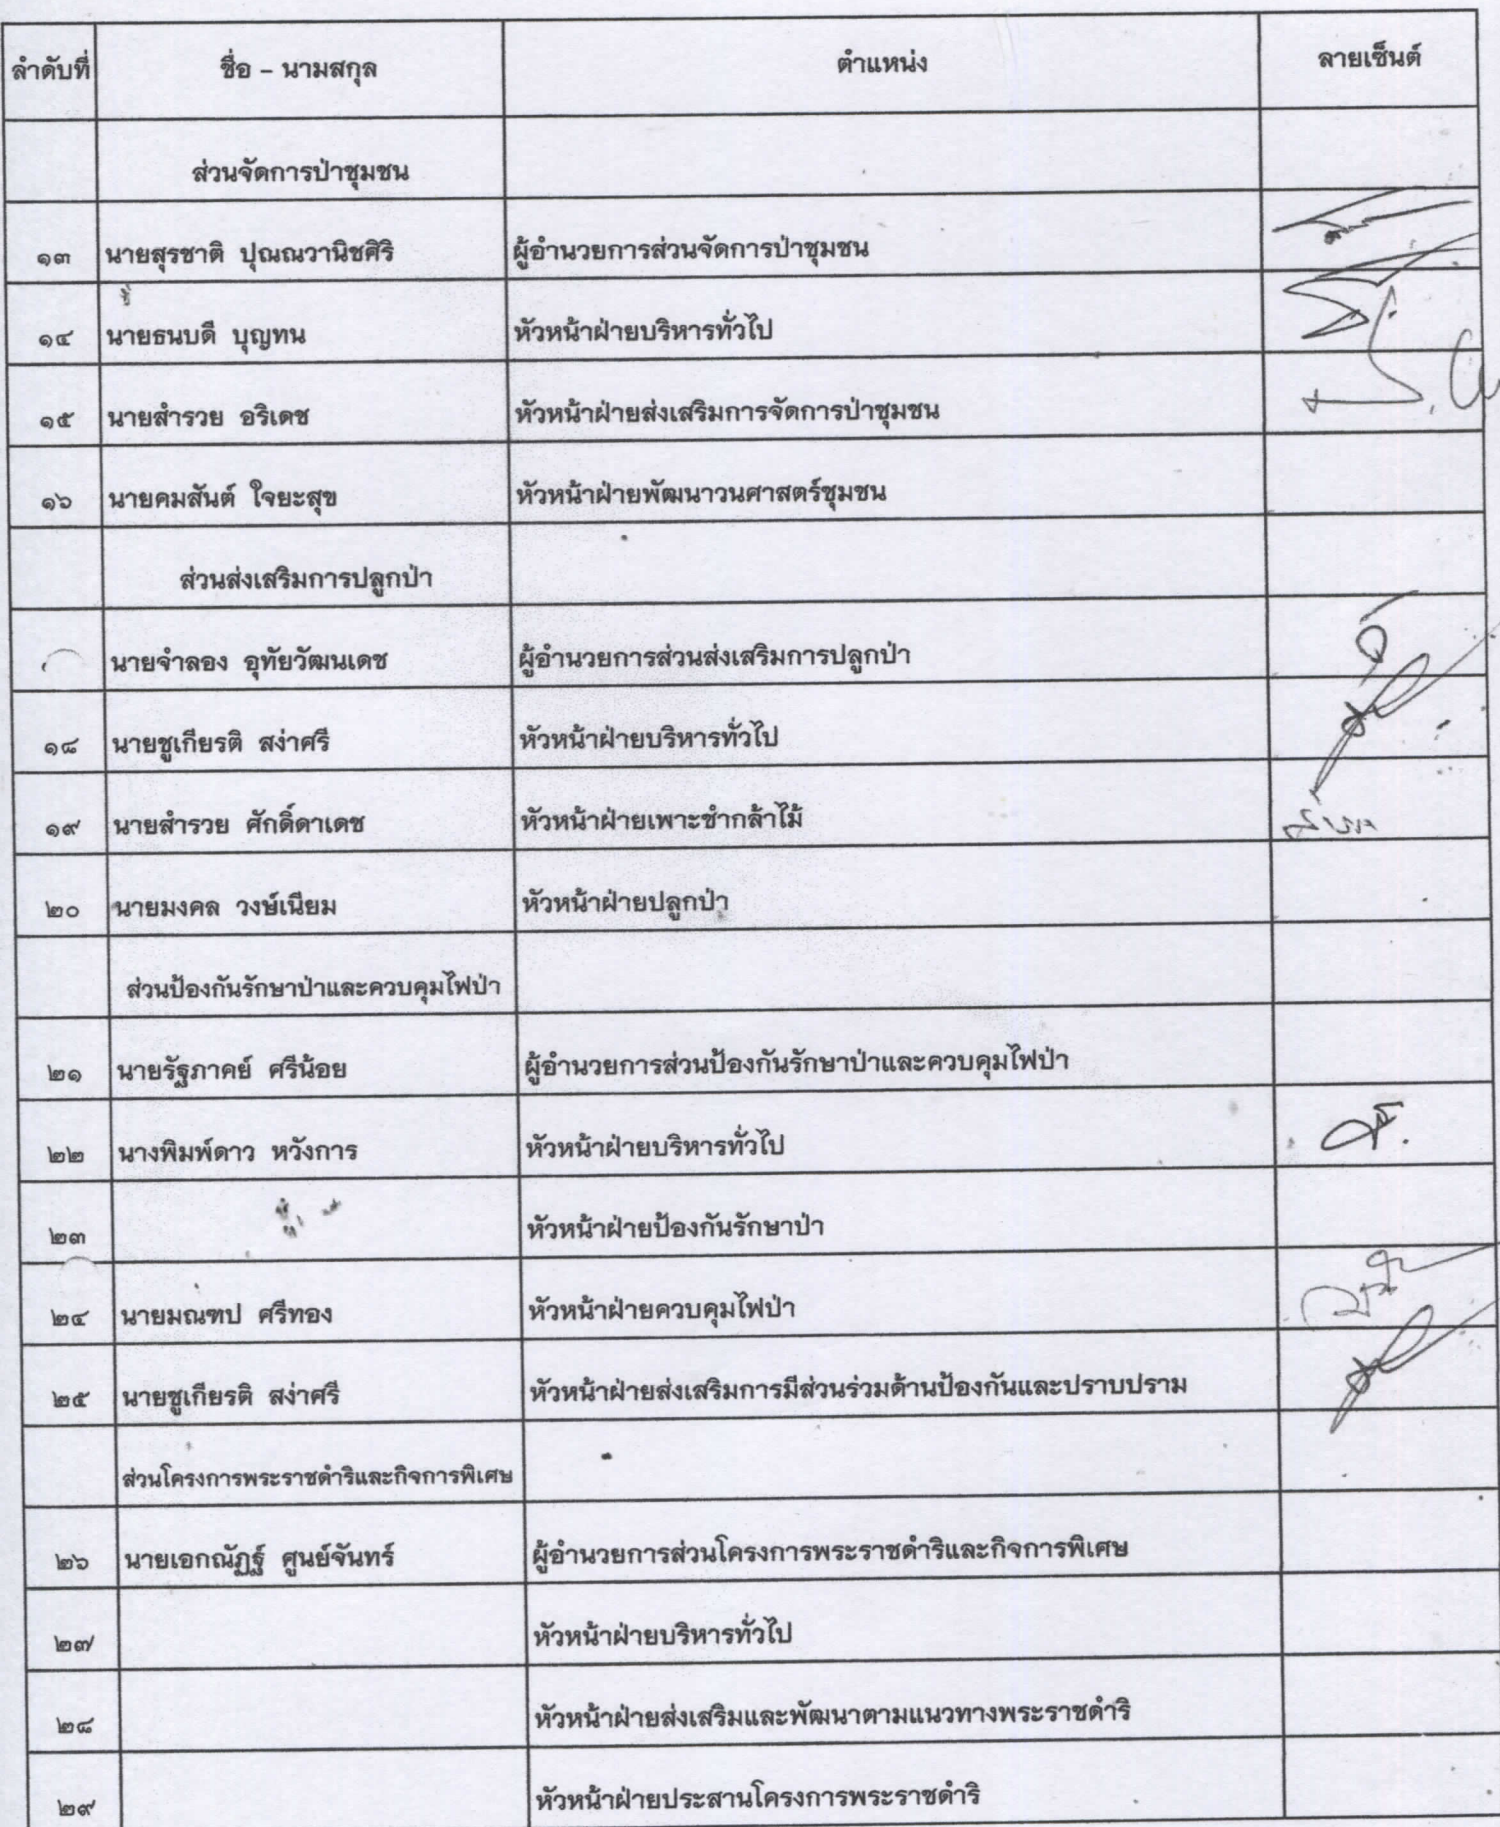 ลำดับที่ ชื่อ – นามสกุล ตำแหน่ง ลายเซ็นต์
ส่วนจัดการป่าชุมชน
๑๓ นายสุรชาติ ปุณณวานิชศิริ ผู้อำนวยการส่วนจัดการป่าชุมชน
๑๔ นายธนบดี บุญทน หัวหน้าฝ่ายบริหารทั่วไป
๑๕ นายสำรวย อริเดช หัวหน้าฝ่ายส่งเสริมการจัดการป่าชุมชน
๑๖ นายคมสันต์ ใจยะสุข หัวหน้าฝ่ายพัฒนาวนศาสตร์ชุมชน
ส่วนส่งเสริมการปลูกป่า
นายจำลอง อุทัยวัฒนเดช ผู้อำนวยการส่วนส่งเสริมการปลูกป่า
๑๘ นายชูเกียรติ สง่าศรี หัวหน้าฝ่ายบริหารทั่วไป
๑๙ นายสำรวย ศักดิ์ดาเดช หัวหน้าฝ่ายเพาะชำกล้าไม้
๒๐ นายมงคล วงษ์เนียม หัวหน้าฝ่ายปลูกป่า
ส่วนป้องกันรักษาป่าและควบคุมไฟป่า
๒๑ นายรัฐภาคย์ ศรีน้อย ผู้อำนวยการส่วนป้องกันรักษาป่าและควบคุมไฟป่า
๒๒ นางพิมพ์ดาว หวังการ หัวหน้าฝ่ายบริหารทั่วไป
๒๓ หัวหน้าฝ่ายป้องกันรักษาป่า
๒๔ นายมณฑป ศรีทอง หัวหน้าฝ่ายควบคุมไฟป่า
๒๕ นายชูเกียรติ สง่าศรี หัวหน้าฝ่ายส่งเสริมการมีส่วนร่วมด้านป้องกันและปราบปราม
ส่วนโครงการพระราชดำริและกิจการพิเศษ
๒๖ นายเอกณัฏฐ์ ศูนย์จันทร์ ผู้อำนวยการส่วนโครงการพระราชดำริและกิจการพิเศษ
๒๗ หัวหน้าฝ่ายบริหารทั่วไป
๒๘ หัวหน้าฝ่ายส่งเสริมและพัฒนาตามแนวทางพระราชดำริ
๒๙ หัวหน้าฝ่ายประสานโครงการพระราชดำริ